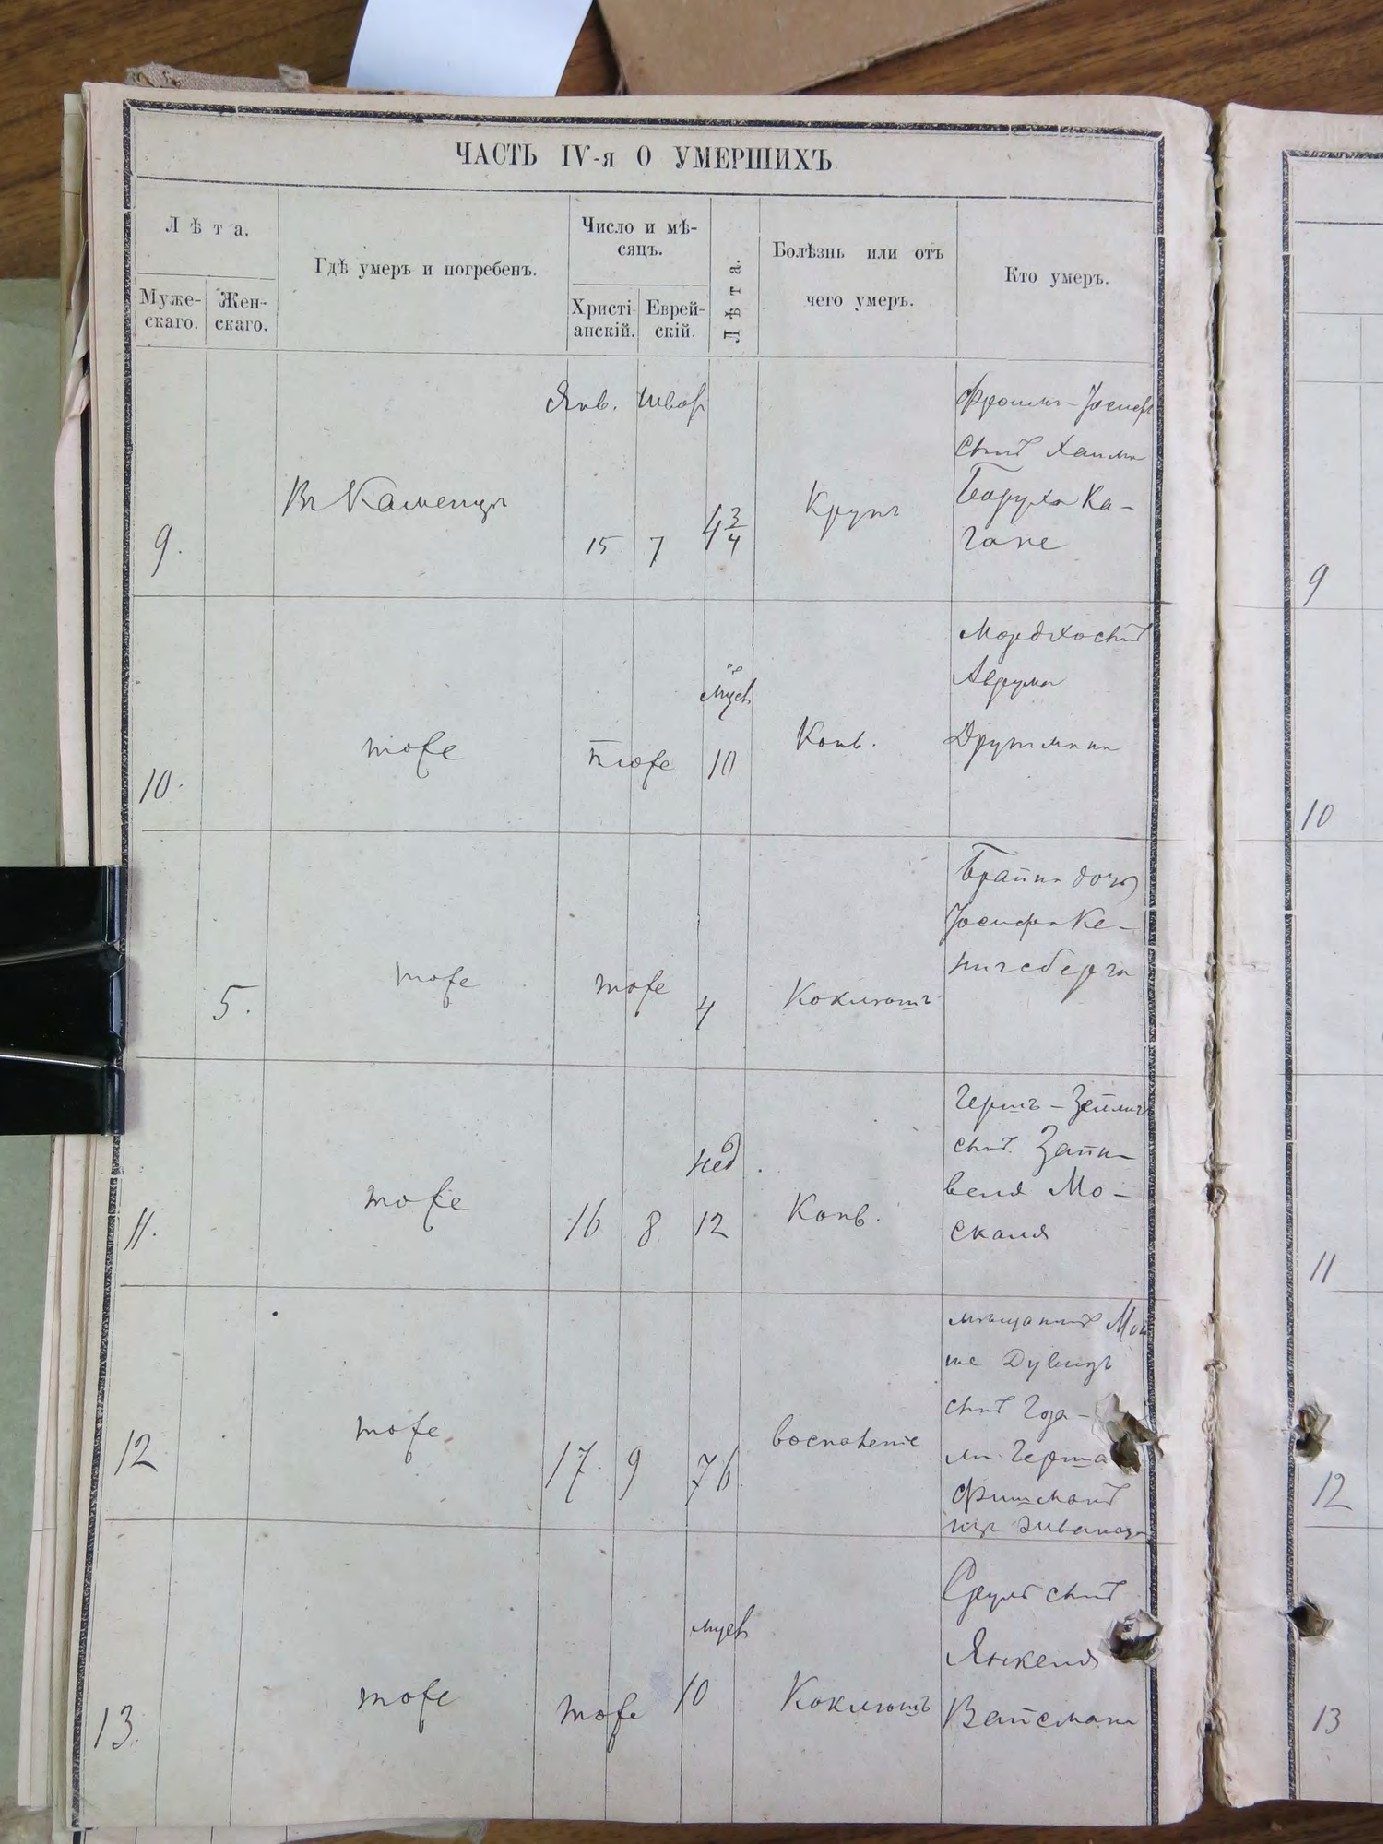 ЧАСТЬ IV-я О УМЕРШИХЪ
Лѣта.
Муже-
скаго.
Жен-
скаго.
Гдѣ умеръ и погребенъ.
Число и мѣ-
сяцъ.
Христі-
анскій.
Еврей-
скій.
Лѣта.
Болѣзнь или отъ
чего умеръ.
Кто умеръ.
Янв. Шват
9.
Въ Каменцѣ
15 7 4 3/4
Крупъ
Фроимъ-Іосифъ
сынъ Хаима
Боруха Ка-
гане
10.
тоже
тоже
мѣсяц
10
Конв.
Мордко сынъ
Аврума
Друкмана
5.
тоже
тоже
4
Коклюшъ
Брайна дочь
Іосифа Ке-
нигсберга
11.
тоже
16 8
нед.
12
Конв.
Гершъ-Зейликъ
сынъ Зайн-
веля Мо-
скаля
12
тоже
17 9 76
воспаленіе
мѣщанинъ Мой
ше Дувидъ
сынъ Года-
ли-Герша
Фишманъ
изъ Жванца
13.
тоже
тоже
мѣсяц
10
Коклюшъ
Сруль сынъ
Янкеля
Вайсмана
9
10
11
12
13